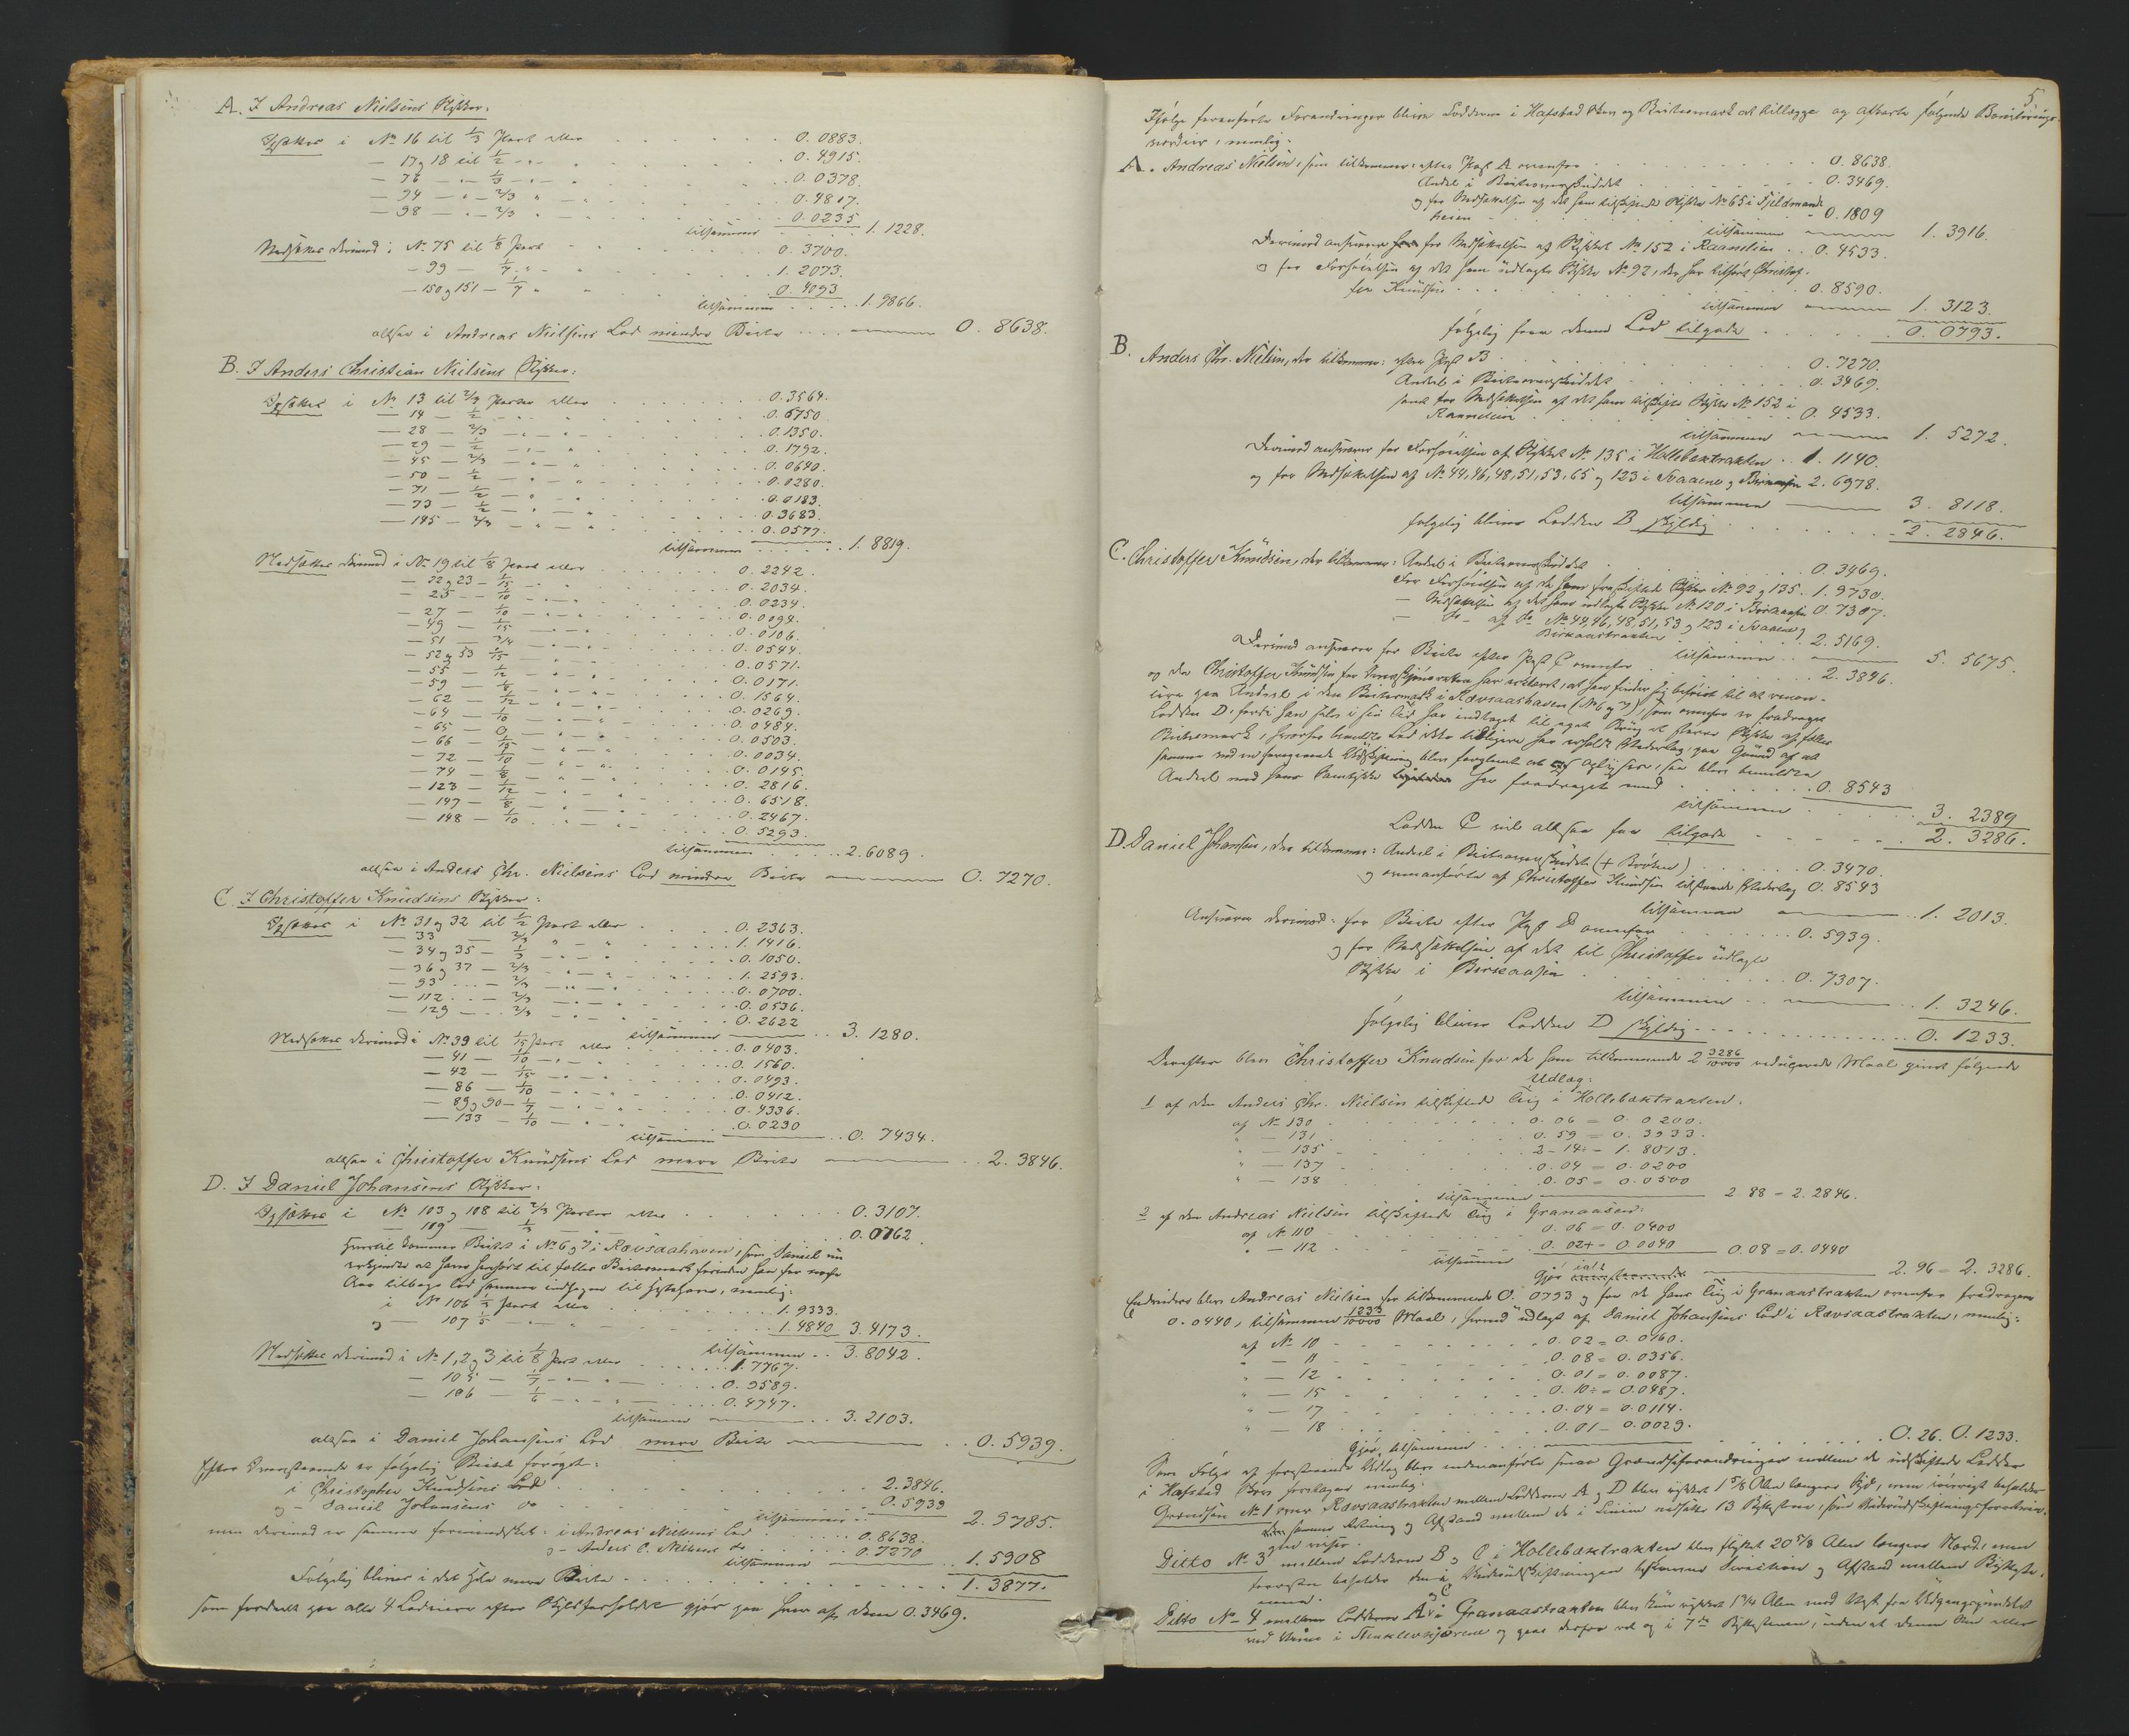 A. I Andreas Nielsens Stykker:
Opsættes i No 16 til 1/3 Part eller 0.0883.
— 17 og 18 til 1/2 - " - 0.4915.
— 76 — " — 1/3 — " - 0.0378.
— 94 — " — 2/3 " — 0.4817.
— 98 — " — 2/3 " 0.0235
tilsammen 1.1228.
Nedsættes derimod i No 75 til 1/8 Part 0.3700.
— 99 — 1/7 " - 1.2073.
— 150 og 151 — 1/7 " " 0.4093
tilsammen 1.9866.
altsaa i Andreas Nielsens Lod mindre Beite 0.8638.
B. I Anders Christian Nielsens Stykker:
Opsættes i No 13 til 2/3 Parter eller 0.3564.
— 14 — 1/2 0.6750.
— 28 — 2/3 0.1350.
— 29 — 1/2 0.1792.
— 45 — 2/3 0.0640.
— 50 — 1/2 0.0280.
— 71 — 1/2 0.0183.
— 73 — 1/2 0.3683.
— 145 — 2/3 0.0577.
tilsammen 1.8819.
Nedsættes derimod i No 19 til 1/8 Part eller 0.2242.
— 22 og 23 — 1/15 0.2034.
— 25 — 1/10 0.0234.
— 27 — 1/10 0.0094.
— 49 — 1/15 0.0106.
— 51 — 3/4 0.0544.
— 52 og 53 1/15 0.0571.
— 55 — 1/12 0.0171.
— 59 — 1/8 0.1564.
— 62 — 1/12 0.0269.
— 64 — 1/10 0.0484.
— 65 — 0 0.0503.
— 66 — 1/15 0.0034.
— 72 — 1/10 0.0145.
— 74 — 1/8 0.2816.
— 123 — 1/12 0.6518.
— 147 — 1/8 0.2467.
— 148 — 1/10 0.5293.
tilsammen 2.6089.
altsaa i Anders Chr. Nielsens Lod mindre Beite 0.7270.
C. I Christoffer Knudsens Stykker:
Opsættes i No 31 og 32 til 1/2 Part eller 0.2363.
— 33 — 2/3 1.1416.
— 34 og 35 — 1/3 0.1050.
— 36 og 37 — 2/3 1.2593.
— 93 — 2/3 0.0700.
— 112 — 2/3 0.0536.
— 129 — 2/3 0.2622
tilsammen 3.1280.
Nedsættes derimod i No 39 til 1/15 Part eller 0.0403.
— 41 — 1/10 0.1560.
— 42 — 1/15 0.0493.
— 86 — 1/10 0.0412.
— 89 og 90 — 1/7 0.4336.
— 133 — 1/10 0.0230
tilsammen 0.7434.
altsaa i Christoffer Knudsens Lod mere Beite 2.3846.
D. I Daniel Johansens Stykker:
Opsættes i No 103 og 108 til 2/3 Parter eller 0.3107.
— 109 — 1/3 0.0762.
Hertil kommer Beitet i No 6 og 7 i Rævsaahaven, som Daniel nu
at have henført til fælles Beitesmark forinden han for nogle
Aar tilbage lod samme indhegne til Hestehave, nemlig:
i No 106 1/3 Part eller 1.9333.
og — 107 1/5 1.4840 3.4173.
tilsammen 3.8042.
Nedsættes derimod i No 1, 2 og 3 til 1/8 Part eller 1.7767.
— 105 — 1/7 0.9589.
— 106 — 1/6 0.4747.
tilsammen 3.2103.
altsaa i Daniel Johansens Lod mere Beite 0.5939.
Efter Ovenstaaende er følgelig Beitet forøget:
i Christopher Knudsens Lod 2.3846.
og - Daniel Johansens do 0.5939
tilsammen 2.9785.
men derimod er samme formindsket: i Andreas Nielsens Lod 0.8638.
og - Anders C. Nielsens do 0.7270
tilsammen 1.5908
Følgelig bliver i det Hele mere Beite 1.3877.
som fordeelt paa alle 4 Lodeiere efter Skyldforholdet gjør paa hver af dem 0.3469.
5
Ifølge foranførte Forandringer bliver Lodderne i Hafstad Skov og Beitesmark at tillægge og afkorte følgende Boniterings-
værdier, nemlig:
A. Andreas Nielsen, som tilkommer: efter Post A ovenfor 0.8638.
Andel i Beiteoverskuddet 0.3469.
og for Nedsættelsen af det ham tilskiftede Stykke No 65 i Fjeldmands
heien 0.1809
tilsammen 1.3916.
Derimod ansvarer for Nedsættelsen af Stykket No 152 i Raamelien 0.4533.
og for Forhøielsen af det ham udlagte Stykke No 92, der har tilhørt Christof-
fer Knudsen 0.8590.
tilsammen 1.3123.
følgelig faar denne Lod tilgode 0.0793.
B. Anders Chr. Nielsen, der tilkommer: efter Post B 0.7270.
Andel i Beiteoverskuddet 0.3469.
samt for Nedsættelsen af det ham tilskiftede Stykke No 152 i
Raamelien 0.4533.
tilsammen 1.5272.
Derimod ansvarer for Forhøielsen af Stykket No 135 i Hollebæktrakten 1.1140.
og for Nedsættelsen af No 44, 46, 48, 51, 53, 65 og 123 i Svaaene og 2.6978.
tilsammen 3.8118.
følgelig bliver Lodden B skyldig 2.2846.
C. Christoffer Knudsen, der tilkommer: Andel i Beiteoverskuddet 0.3469.
For Forhøielsen af de ham fraskiftede Stykker No 92 og 135 1.9730.
— Nedsættelsen af det ham udlagte Stykke No 120 i Birkaasen 0.7307.
— do — af do No 44, 46, 48, 51, 53 og 123 i Svaaene og
Birkaastrakten 2.5169.
tilsammen 5.5675.
Derimod ansvarer for Beite efter Post C ovenfor 2.3846.
og da Christoffer Knudsen for har erklæret, at han finder sig beføiet til at renon-
cere paa Andeel i den Beitesmark i Rævsaashaven (No 6 og 7), som ovenfor er fradraget
Lodden D, fordi han selv i sin Tid har indtaget til eget Brug et større Stykke af fælles
Beitesmark, hvorfor Lod ikke tidligere har erholdt Vederlag, paa Grund af at
samme ved en foregaaende Udskiftning blev forglemt at oplyses, saa blev bemeldte
Andeel med hans Samtykke her fradraget med 0.8543
tilsammen 3.2389
Lodden C vil altsaa faa tilgode 2.3286.
D. Daniel Johansen, der tilkommer: Andeel i Beiteoverskuddet (+ Brøken) 0.3470.
og ovenanførte af Christoffer Knudsen tilstaaede Vederlag 0.8543
tilsammen 1.2013.
Ansvarer derimod: for Beite efter Post D ovenfor 0.5939.
og for Nedsættelsen af det til Christoffer udlagte
Stykke i Birkaasen 0.7307.
tilsammen 1.3246.
følgelig bliver Lodden D skyldig 0.1233.
Derefter blev Christoffer Knudsen for de ham tilkommende 2 3286/10000 reducerede Maal givet følgende
Udlæg:
1 af den Anders Chr. Nielsen tilskiftede Teig i Hollebæktrakten:
af No 130 0.06 = 0.0200.
" — 131 0.59 = 0.3933.
" — 135 2-14÷ = 1.8013.
" — 137 0.04 = 0.0200
" — 138 0.05 = 0.0500
tilsammen 2.88 = 2.2846.
2 af den Andreas Nielsen tilskiftede Teig i Granaasen:
af No 110 0.06 = 0.0400
" — 112 0.02+ = 0.0040
tilsammen 0.08 = 0.0440
Gjør ialt 2.96 = 2.3286.
Endvidere blev Andreas Nielsen for tilkommende 0.0793 og for de hans Teig i Granaastrakten ovenfor fradragne
0.0440, tilsammen 1233/10000 Maal, herved udlagt af Daniel Johansens Lod i Rævsaastrakten, nemlig:
af No 10 0.02 = 0.0160.
" — 11 0.08 = 0.0356.
" — 12 0.01 = 0.0087.
" — 15 0.10÷ = 0.0487.
" — 17 0.04 = 0.0114.
" — 18 0.01 = 0.0029.
Gjør tilsammen 0.26. 0.1233.
Som Følge af foranstaaende Udlæg blev nedenanførte smaa Grændseforandringer mellem de udskiftede Lodder
i Hafstad Skov foretagne nemlig:
Grændsen No 1 over Rævsaastrakten mellem Lodderne A og D blev rykket 1 5/8 Alen længere Syd, men iøvrigt beholder
den samme Retning og Afstand mellem de i Linien nedsatte 13 Byttestene, som Underudskiftningsforretnin-
gen viser.
Ditto No 3 mellem Lodderne B og C i Hollebæktrakten blev flyttet 20 5/8 Alen længere Nord, men
forresten beholder den i Underudskiftningen bestemte Direction og Afstand mellem Bytteste-
nene.
Ditto No 4 mellem Lodderne A og C i Granaastrakten blev kun rykket 1 3/4 Alen mod Vest fra Udgangspunktet
ved i og gaar derfra ret og i 7de Byttestenen, uden at denne Sten eller